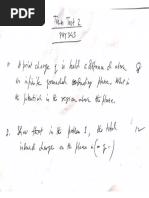 Term Test 2
PHY 343
1. A point charge q is held a distance d above
an infinite grounded conducting plane. What is
the potential in the region above the plane.
2. Show that in the problem 1, the total
induced charge on the plane is (= q -)